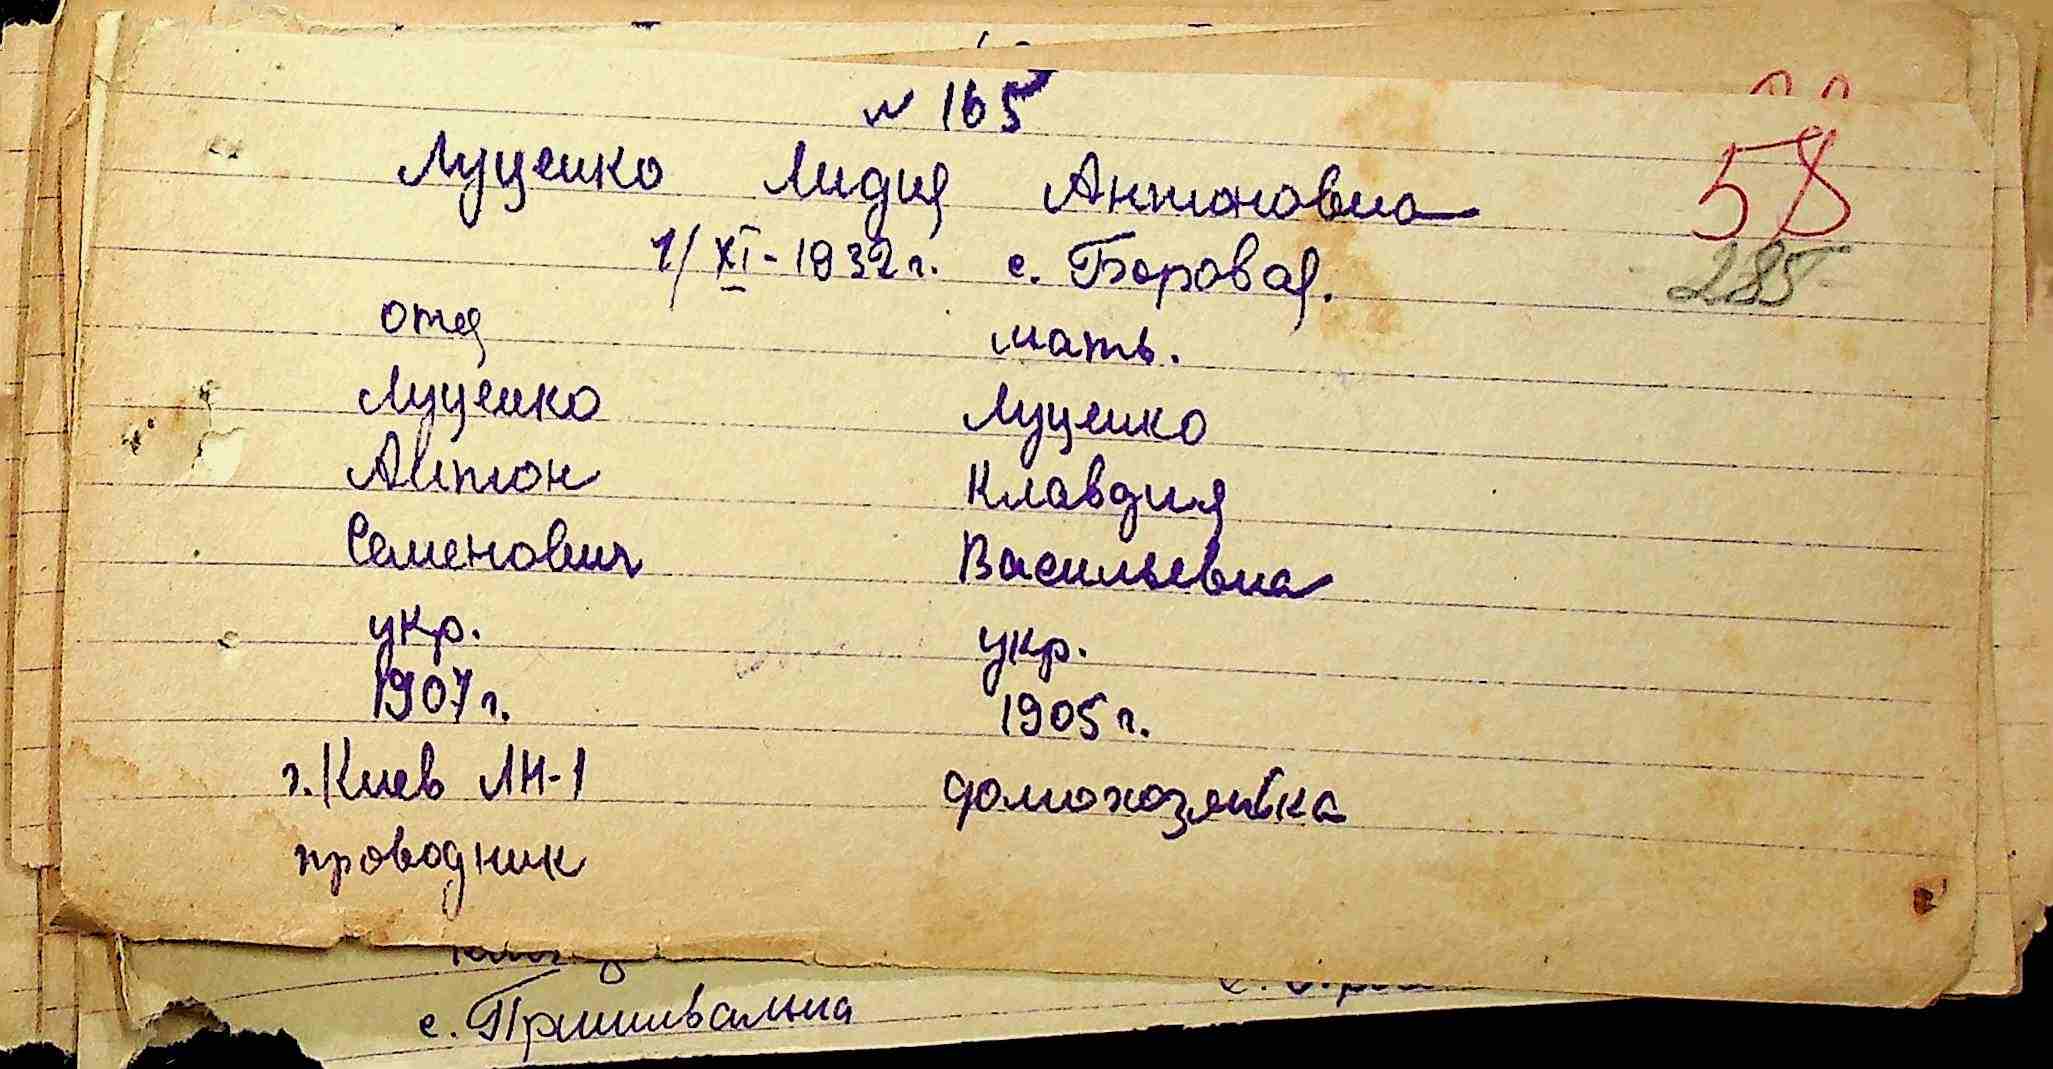 № 165
58
Луценко Лидия Антоновна
1/XI-1932 г. с. Боровая.
285
отец мать.
Луценко Луценко
Антон Клавдия
Семенович Васильевна
укр. укр.
1907 г. 1905 г.
г. Киев ЛН-1 домохозяйка
проводник
с. Пришивальна